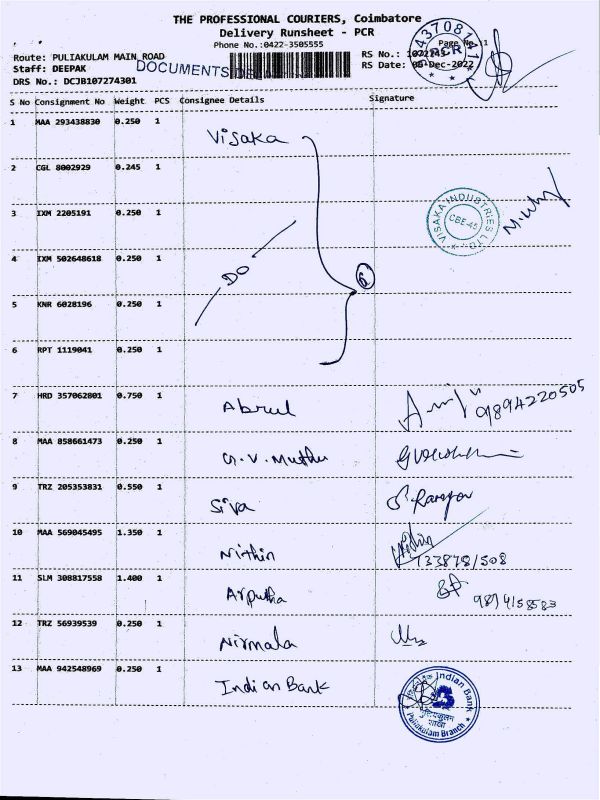 THE PROFESSIONAL COURIERS, Coimbatore
Delivery Runsheet - PCR
Phone No.:0422-3505555
Page No. 1
Route: PULIAKULAM MAIN ROAD
RS No.:
Staff: DEEPAK
DOCUMENTS
RS Date: -Dec-2022
DRS No.: DCJB107274301
PCR
S No Consignment No Weight PCS Consignee Details Signature
1 MAA 293438830 0.250 1 Visaka
2 CGL 8002929 0.245 1
3 IXM 2205191 0.250 1
VISAKA INDUSTRIES LTD.
CBE-45
4 IXM 502648618 0.250 1 DO 6
5 KNR 6028196 0.250 1
6 RPT 1119041 0.250 1
7 HRD 357062801 0.750 1 Abrul 9894220505
8 MAA 858661473 0.250 1 G.V. Muthu
9 TRZ 205353831 0.550 1 Siva
10 MAA 569045495 1.350 1 Nithin
11 SLM 308817558 1.400 1 Arputha
12 TRZ 56939539 0.250 1 Nirmala
13 MAA 942548969 0.250 1 Indian Bank
Indian Bank
शाखा
Puliakulam Branch